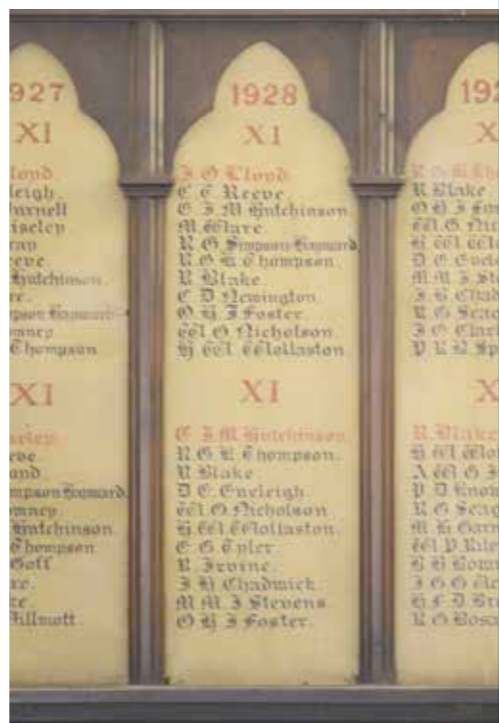 927
XI
Lloyd.
leigh.
urnell
iseley
ray
eeve.
Hutchinson.
re.
pson Hayward
wney
Thompson
XI
iseley.
eve
und
mpson Hayward.
wney.
Hutchinson
Thompson
Goff
re.
re
illmott
1928
XI
J O Lloyd.
C C Reeve.
C. J. M Hutchinson
M. Ware.
R G. Simpson Hayward
R. G. H. Thompson
R Blake.
C D Newington
O H J Foster.
W O Nicholson.
H W Wollaston
XI
C. J. M Hutchinson.
R G. H. Thompson.
R Blake
D C. Eveleigh.
W. O. Nicholson
H. W Wollaston.
C. G. Tyler.
R. Irvine.
J H Chadwick.
M M. J Stevens
O H J Foster.
192
X
R Blake.
O H J Fos
W. O. Nic
H W Wo
D C Evele
M M J St
J H Chad
R G Seag
J O Clar
P R N Sp
X
R. Blake
H W Wo
A W G J
P D Know
R G Seag
M H Garn
W P Rile
B H Bow
J G G
H F D Br
R G Bosa